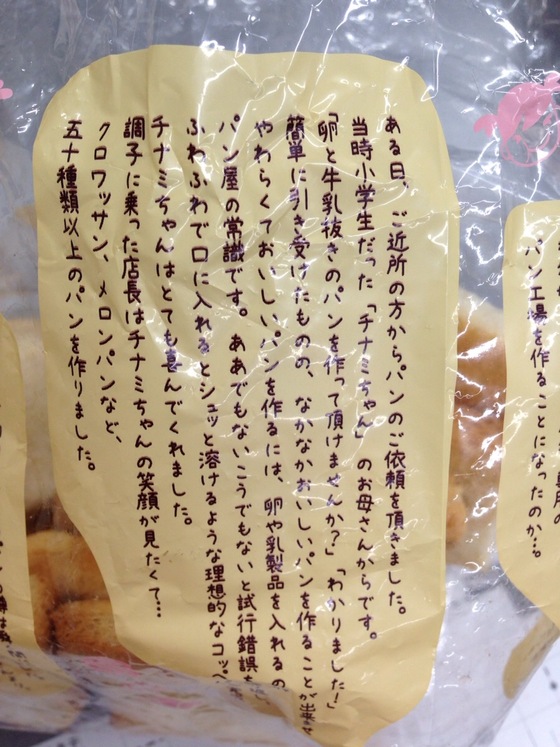 パン工場を作ることになったのか…。
ある日、ご近所の方からパンのご依頼を頂きました。
当時小学生だった「チナミちゃん」のお母さんからです。
「卵と牛乳抜きのパンを作って頂けませんか?」「わかりました!」
簡単に引き受けたものの、なかなかおいしいパンを作ることが出来ませ
やわらくておいしいパンを作るには、卵や乳製品を入れるの
パン屋の常識です。ああでもないこうでもないと試行錯誤を
ふわふわで口に入れるとシュッと溶けるような理想的なコッペ
チナミちゃんはとても喜んでくれました。
調子に乗った店長はチナミちゃんの笑顔が見たくて…
クロワッサン、メロンパンなど、
五十種類以上のパンを作りました。